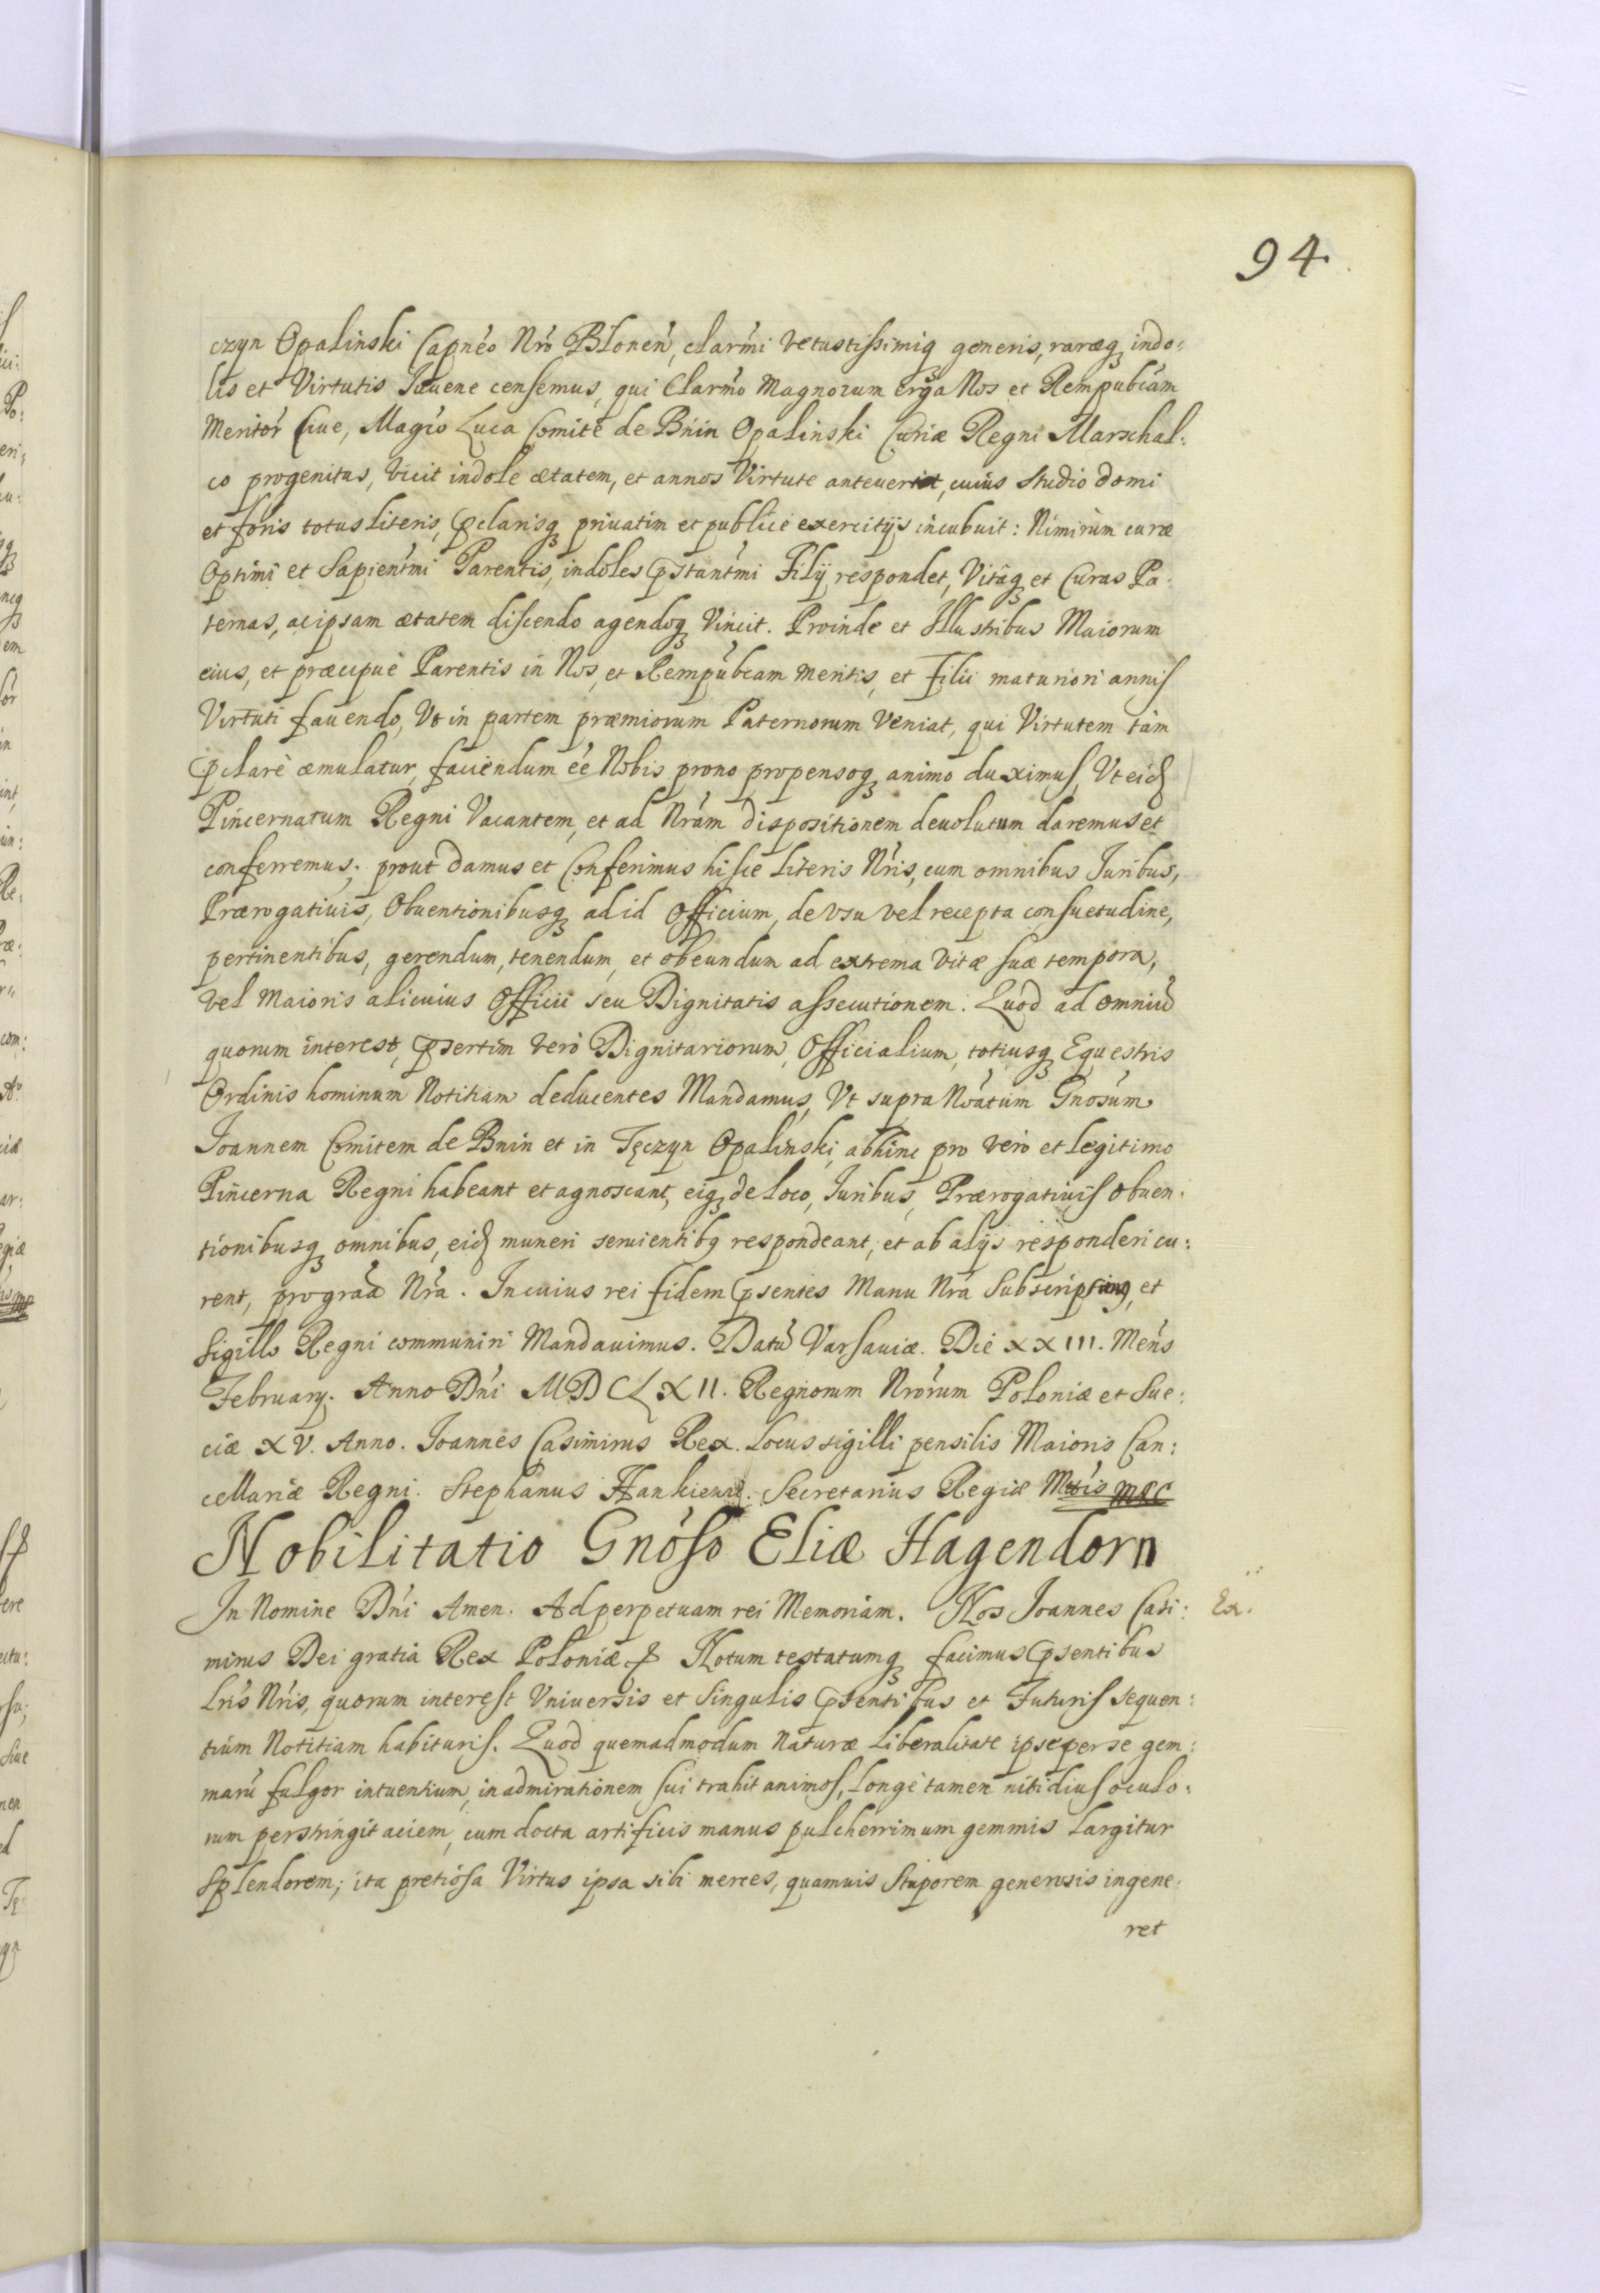 94.
czyn Opalinski Capnéo Nrõ Blonen̄, clarḿi vetustissimiq̃ generis, raræq̃ indo:
lis et Virtutis Iuvene censemus, qui Clarḿo Magnorum erga Nos et Rempubĺcam
Meritór Ciue, Magćo Luca Comite de Bnin Opalinski Curiæ Regni Marschal:
co progenitus, vicit indole ætatem, et annos Virtute antevertit, cuius studio domi
et foris totus literis, p̃clarisq̃ privatim et publice exercitijs incubuit: Nimirùm curæ
Optimi et Sapientḿi Parentis, indoles p̃stantḿi Filij respondet, Vitāq̃ et Curas Pa:
ternas, ac ipsam ætatem discendo agendoq̃ Vincit. Proinde et Illustribus Maiorum
eius, et præcipuè Parentis in Nos, et Rempúbcam meritis, et Filii maturiori annis
Virtuti favendo, Vt in partem præmiorum Paternorum Veniat, qui Virtutem tàm
p̃clarè æmulatur, faciendum éé Nobis prono propensoq̃ animo duximus, Vt eid̃
Pincernatum Regni Vacantem, et ad Nrám dispositionem devolutum daremus et
conferremus; prout damus et Conferimus hisce Literis Nŕis, cum omnibus Iuribus,
Prærogativis, Obventionibusq̃ ad id Officium, de vsu vel recepta consuetudine,
pertinentibus, gerendum, tenendum, et obeundum ad extrema vitæ suæ tempora,
vel Maioris alicuius Officii seu Dignitatis assecutionem. Quod ad omniū
quorum interest, p̃sertim verò Dignitariorum, Officialium, totiusq̃ Equestris
Ordinis hominum Notitiam deducentes Mandamus, Vt supra Nóatum Gnosúm
Ioannem Comitem de Bnin et in Tęczyn Opalinski, abhinc pro vero et legitimo
Pincerna Regni habeant et agnoscant, eiq̃ de loco, Iuribus, Prærogativis obven:
tionibusq̃ omnibus, eid̃ muneri servientibq̃ respondeant, et ab alijs responderi cu:
rent, pro gratā Nrá. In cuius rei fidem p̃sentes Manu Nrá Subscriptas, et
Sigillo Regni communiri Mandavimus. Datū Varsaviæ. Die XXIII. Meńs
February. Anno Dńi MDCLXII. Regnorum Nrórum Poloniæ et Sue:
ciæ XV. Anno. Ioannes Casimirus Rex. Locus sigilli pensilis Maioris Can:
cellariæ Regni. Stephanus Hankiewic. Secretarius Regiæ Mttís mpp
Nobilitatio Gnóso Eliæ Hagendorn
In Nomine Dńi Amen. Ad perpetuam rei Memoriam. Nos Ioannes Casi: Ex.
mirus Dei gratia Rex Poloniæ & Notum testatumq̃ facimus p̃sentibus
Lrís Nŕis, quorum interest Vniversis et Singulis p̃sentibus et Futuris sequen:
tium Notitiam habituris. Quod quemadmodum Naturæ Liberalitate ipse per se gem:
marū fulgor intuentium, in admirationem sui trahit animos, Longè tamen nitidius oculo:
rum perstringit aciem, cum docta artificis manus pulcherrimum gemmis Largitur
Splendorem; ita pretiosa Virtus ipsa sibi merces, quamvis Stuporem generosis ingene:
ret